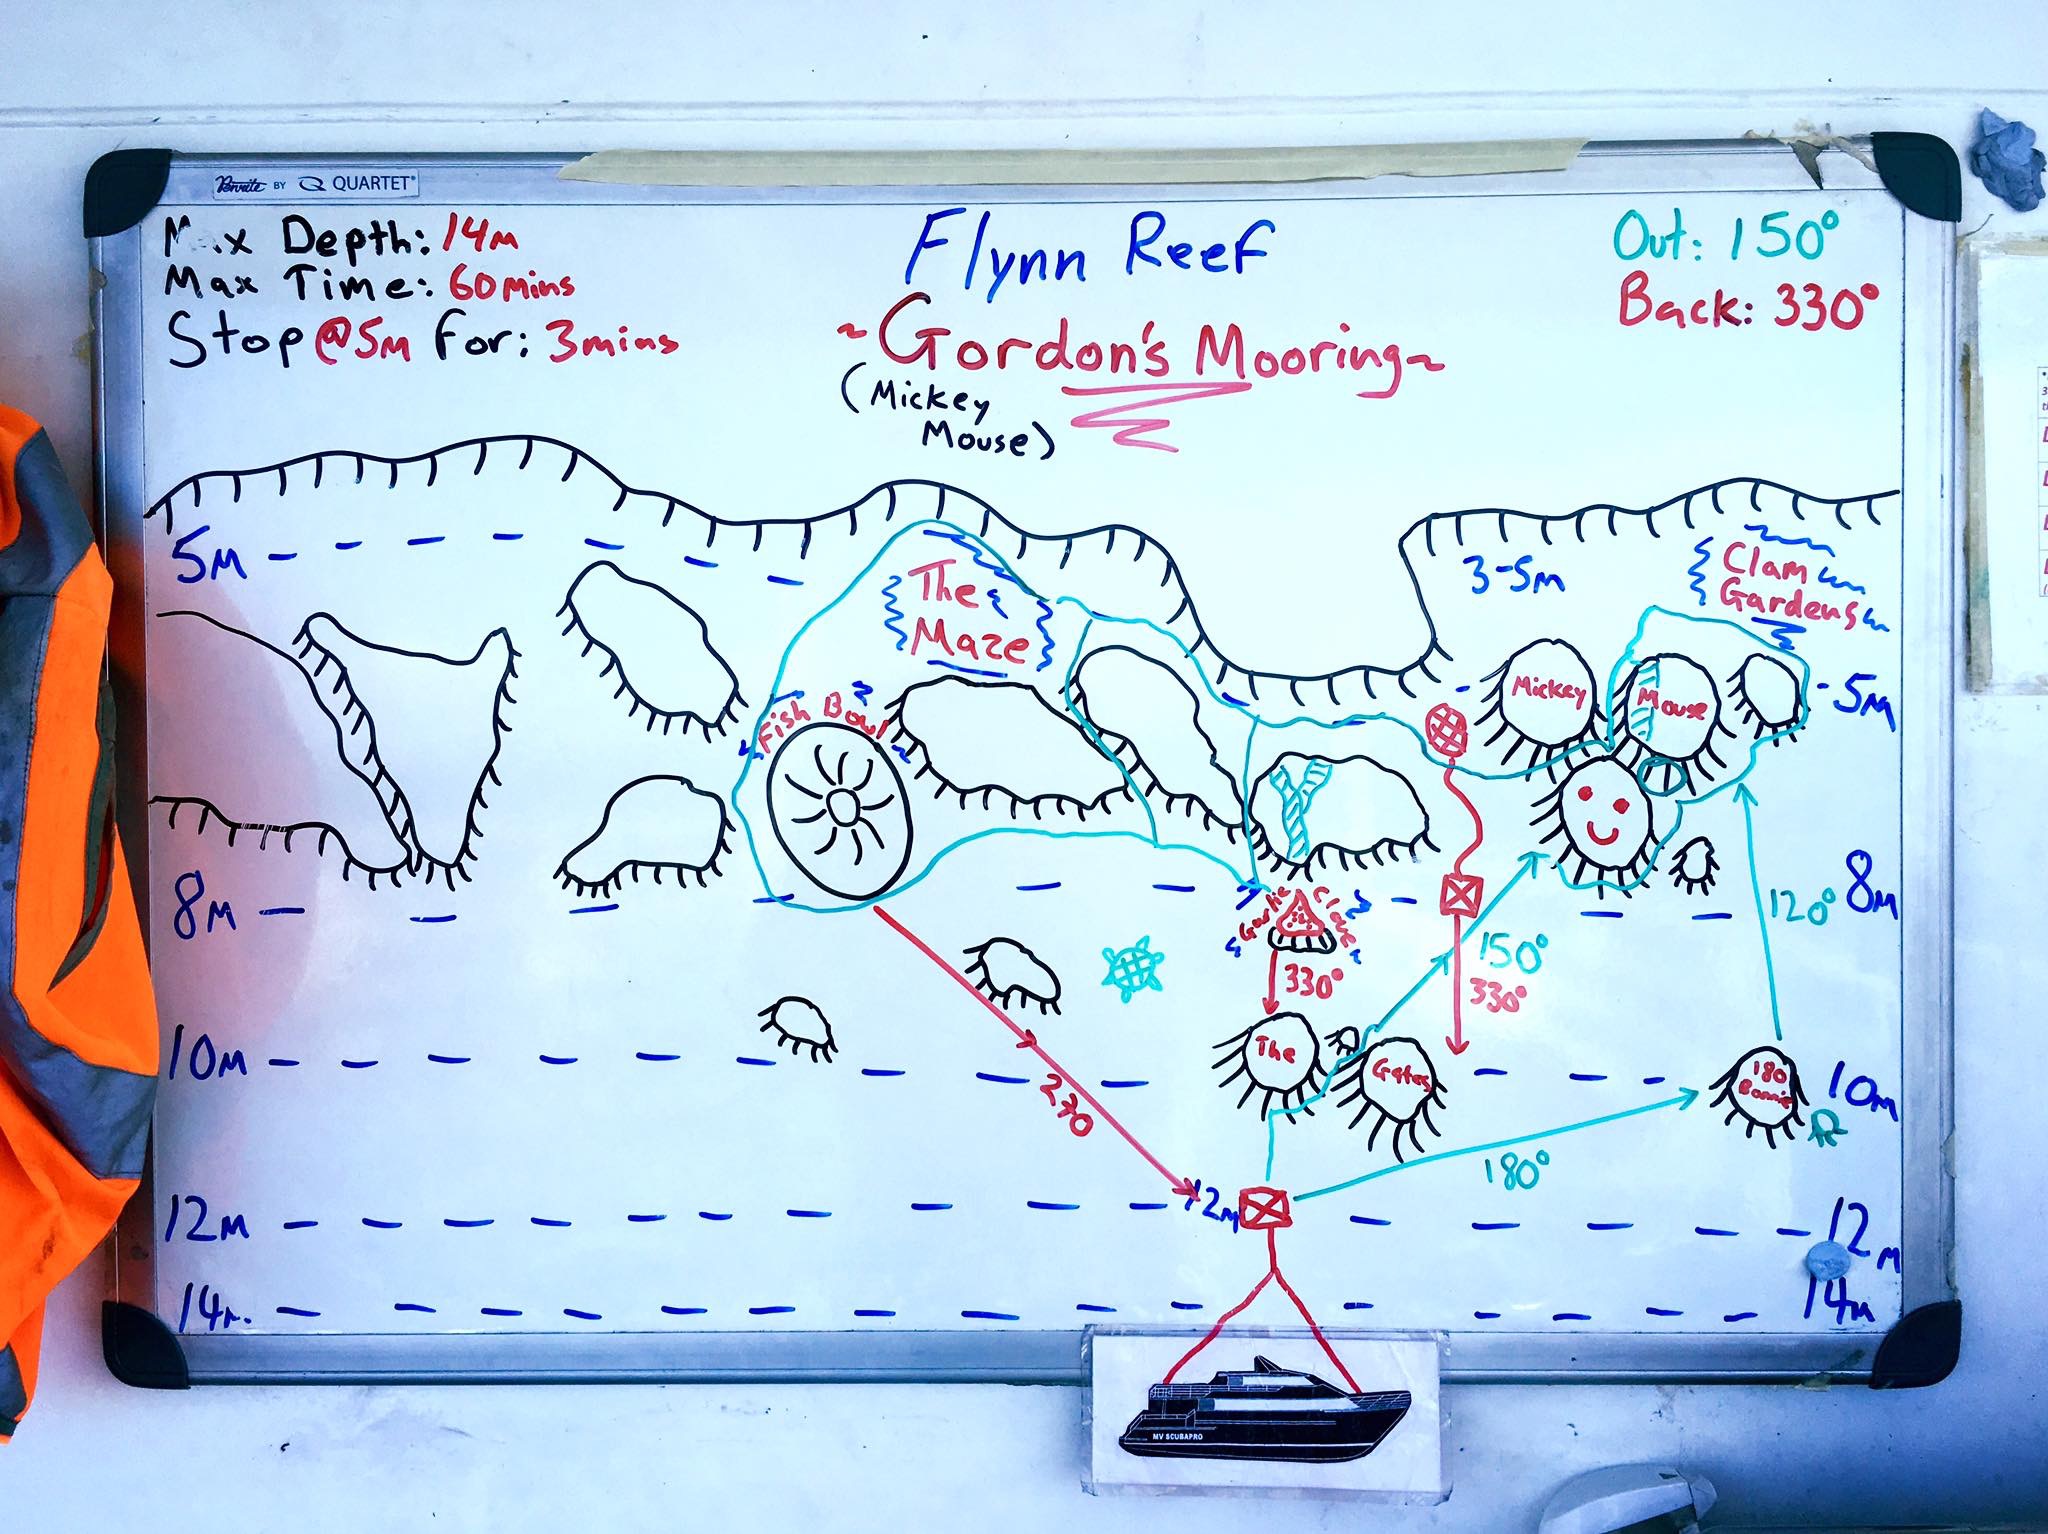 Penrite BY QUARTET
Max Depth: 14m
Max Time: 60mins
Stop @5m for: 3mins
Flynn Reef
~Gordon's Mooring~
(Mickey
Mouse)
Out: 150°
Back: 330°
5m
3-5m
Clam
Gardens
The
Maze
Fish Bowl
Mickey
Mouse
5m
8m
8m
Garlic Clove
330°
150°
330°
120°
10m
The
Gates
180
Bommie
10m
270
180°
12m
12m
12m
14m
14m
MV SCUBAPRO